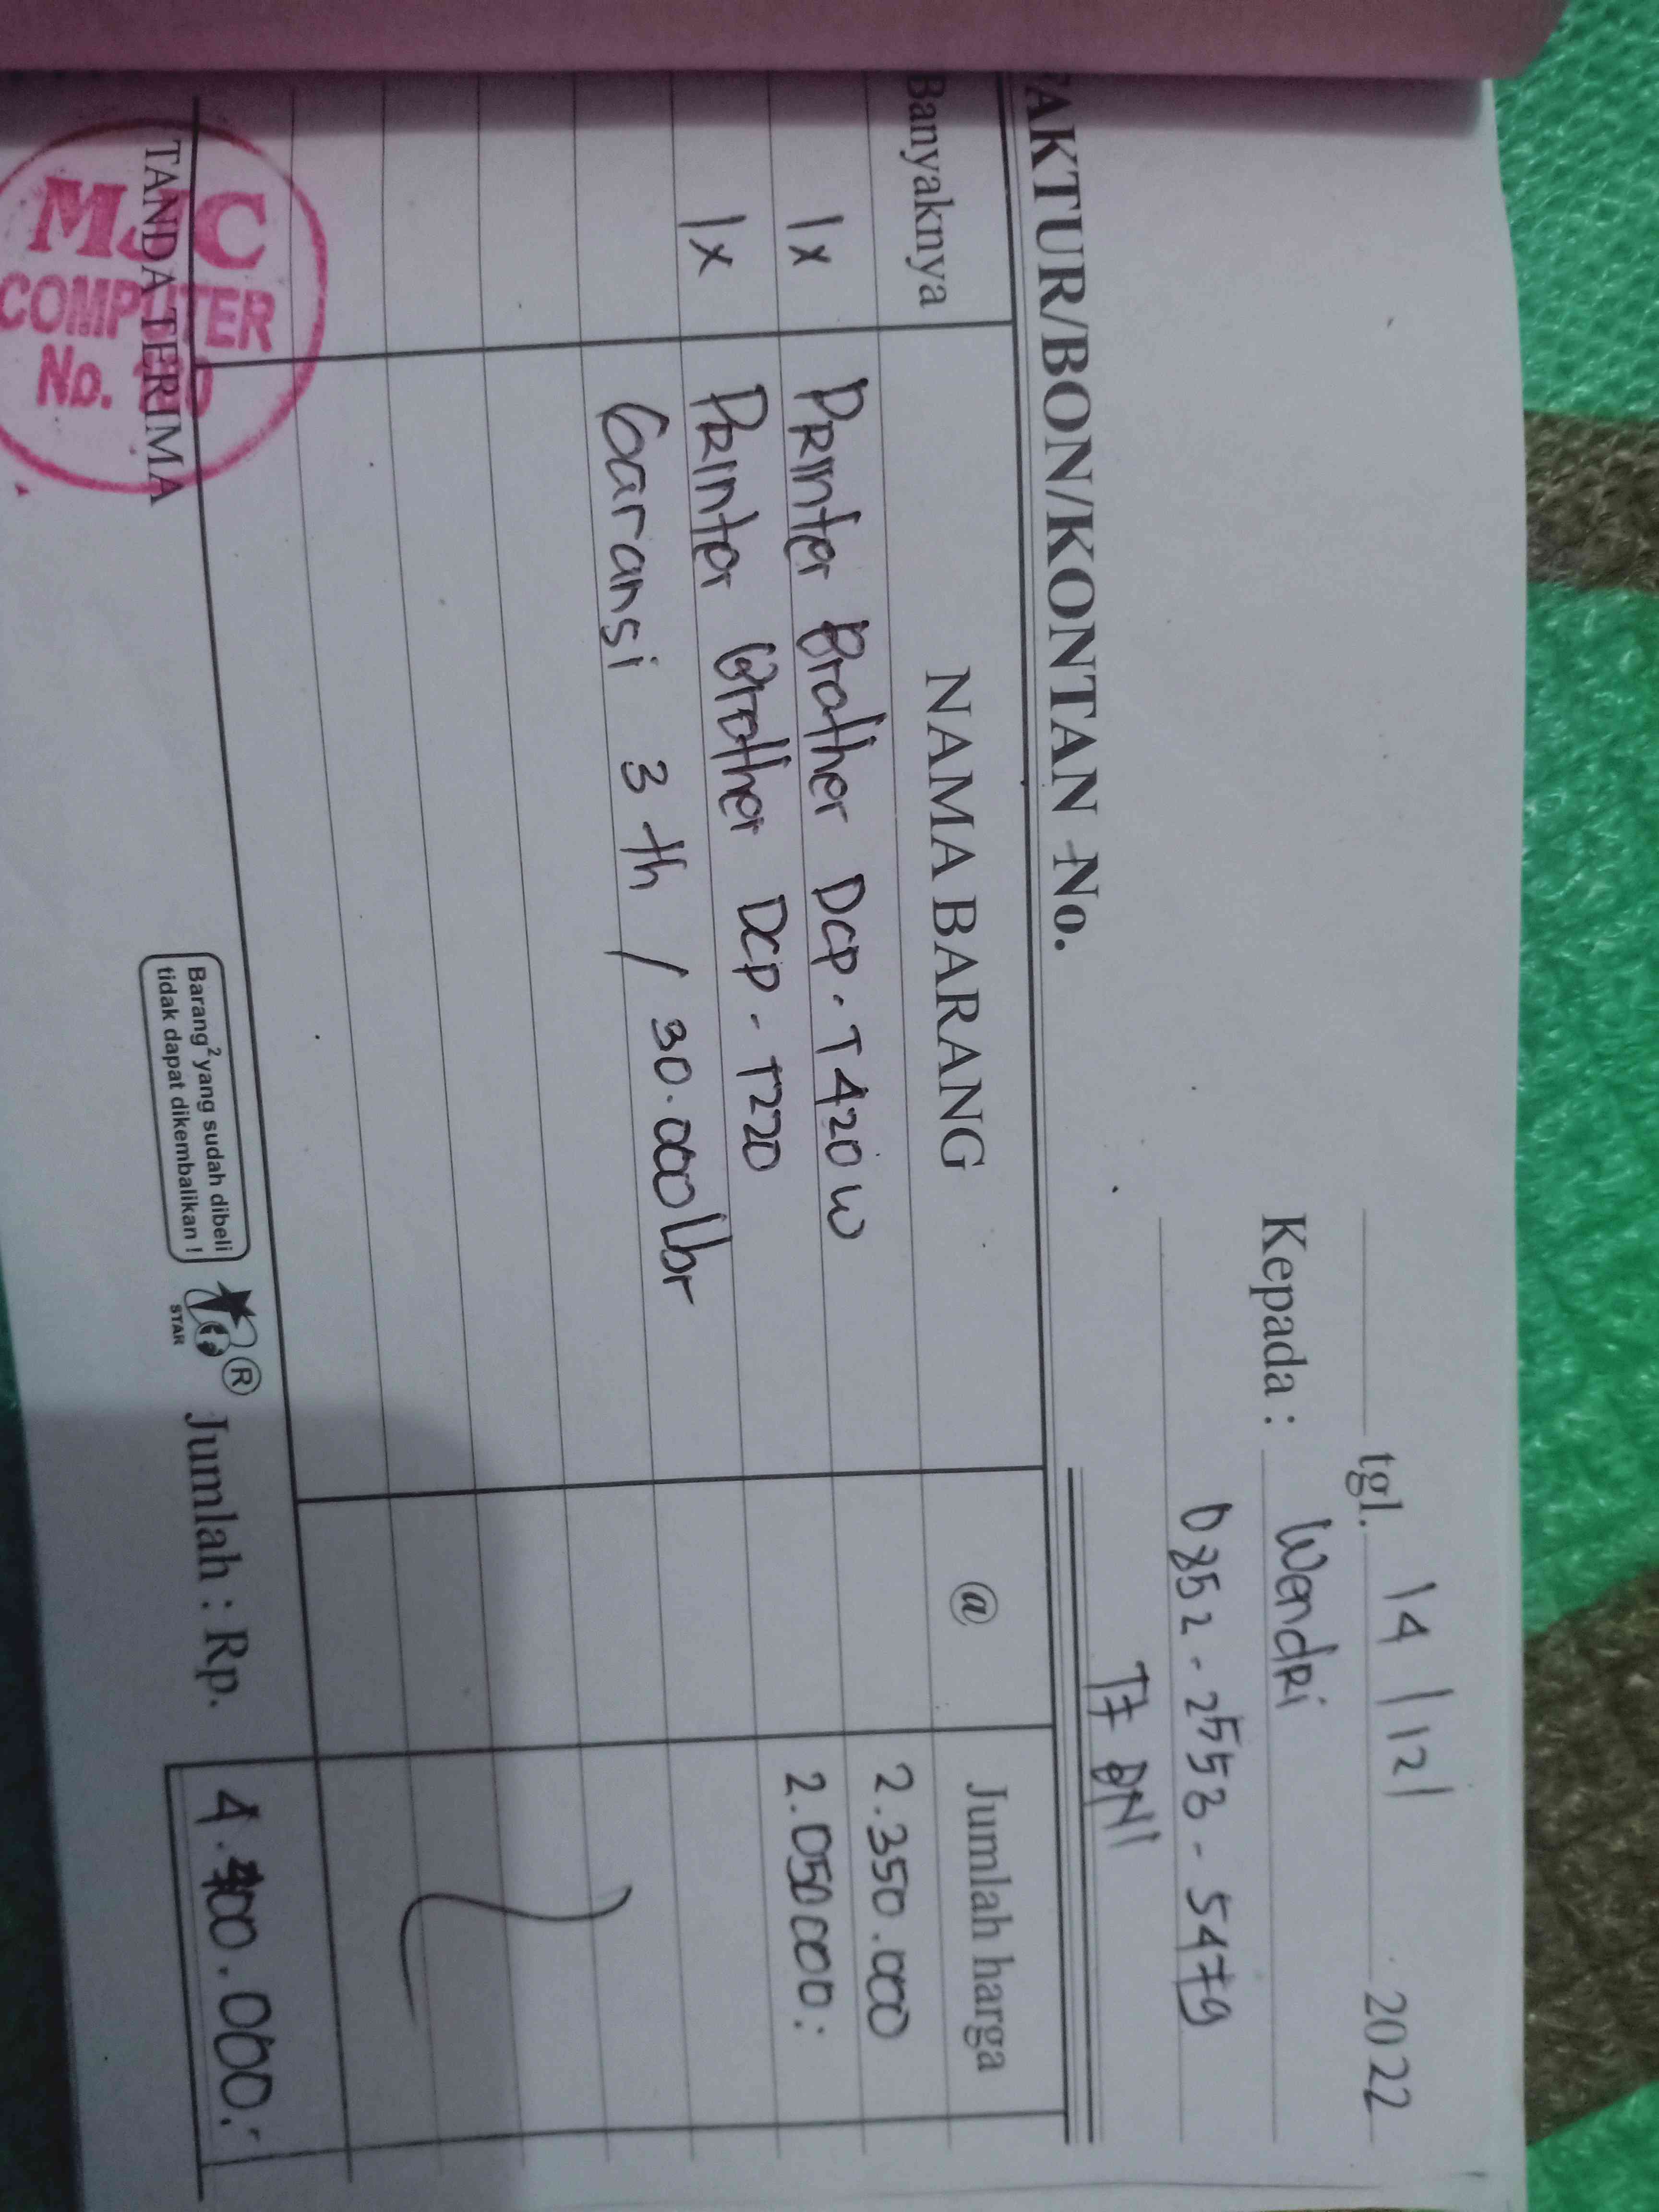 tgl. 14/12/ 2022
Kepada : Wendri
0852-2553-5479
FAKTUR/BON/KONTAN No.
TF BNI
Banyaknya NAMA BARANG @ Jumlah harga
1x Printer Brother DCP-T420W 2.350.000
1x Printer Brother DCP-T220 2.050000:
Garansi 3 th / 30.000 lbr
TANDA TERIMA
MJC
COMPUTER
No.
Barang² yang sudah dibeli
tidak dapat dikembalikan !
STAR
®
Jumlah : Rp. 4.400.000:-